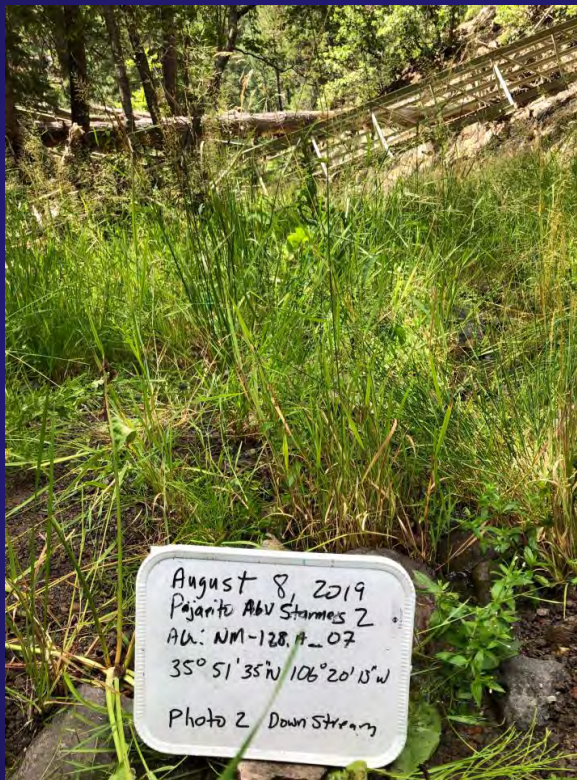 August 8, 2019
Pajarito Abv Starmers 2
AU: NM-128.A_07
35° 51' 35"N 106° 20' 13"W
Photo 2 Down Stream